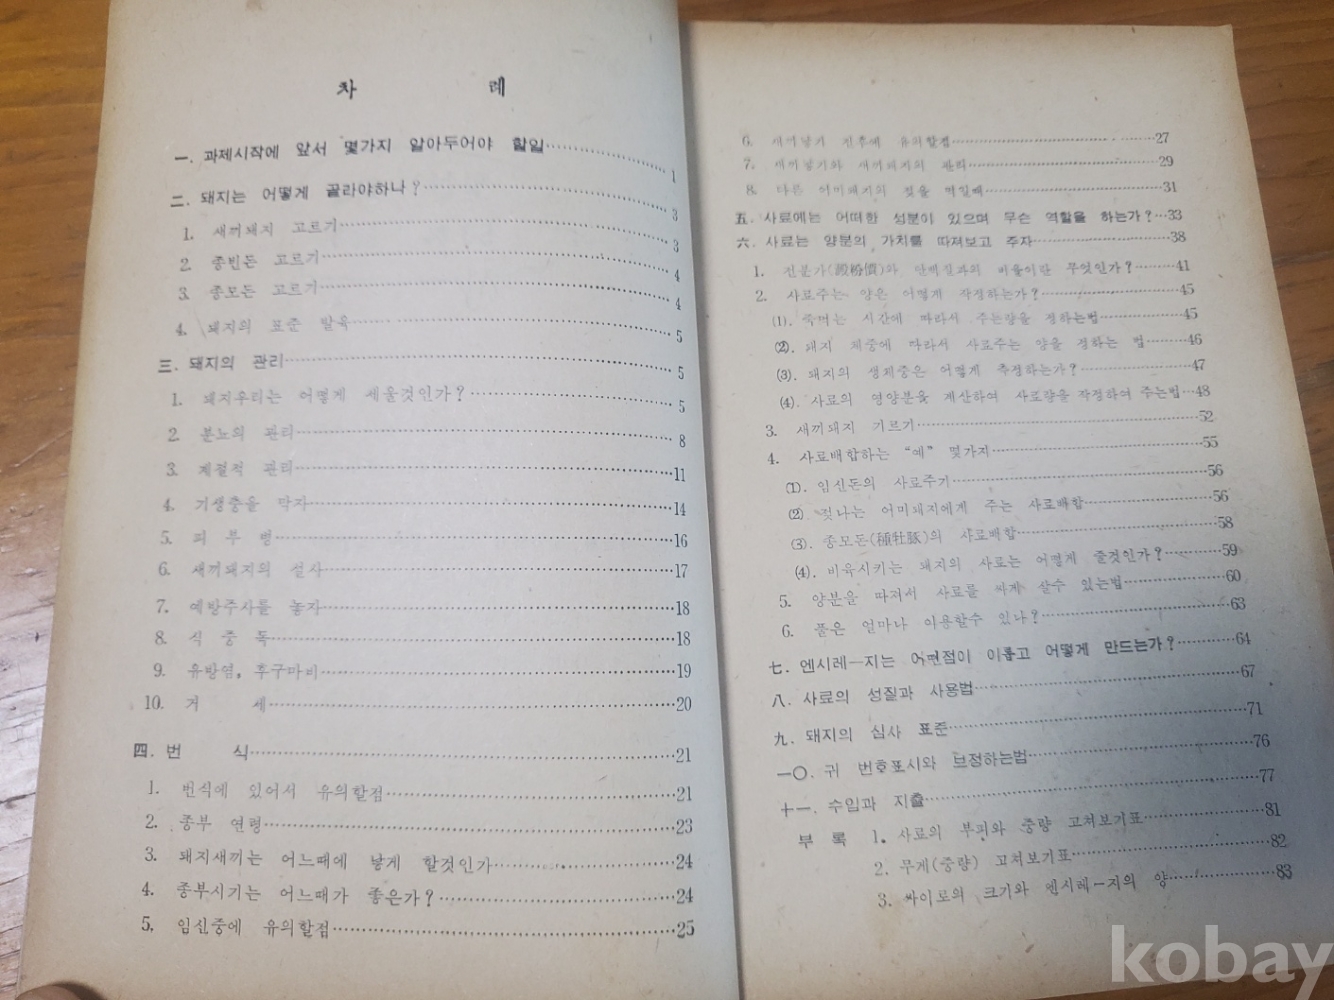 차 례
一. 과제시작에 앞서 몇가지 알아두어야 할일 1
二. 돼지는 어떻게 골라야하나? 3
1. 새끼돼지 고르기 3
2. 종빈돈 고르기 4
3. 종모돈 고르기 4
4. 돼지의 표준 발육 5
三. 돼지의 관리 5
1. 돼지우리는 어떻게 세울것인가? 5
2. 분뇨의 관리 8
3. 계절적 관리 11
4. 기생충을 막자 14
5. 피 부 병 16
6. 새끼돼지의 설사 17
7. 예방주사를 놓자 18
8. 식 중 독 18
9. 유방염, 후구마비 19
10. 거 세 20
四. 번 식 21
1. 번식에 있어서 유의할점 21
2. 종부 연령 23
3. 돼지새끼는 어느때에 낳게 할것인가 24
4. 종부시기는 어느때가 좋은가? 24
5. 임신중에 유의할점 25
6. 새끼낳기 전후에 유의할점 27
7. 새끼낳기와 새끼돼지의 관리 29
8. 다른 어미돼지의 젖을 먹일때 31
五. 사료에는 어떠한 성분이 있으며 무슨 역할을 하는가? 33
六. 사료는 양분의 가치를 따져보고 주자 38
1. 전분가(澱粉價)와 단백질과의 비율이란 무엇인가? 41
2. 사료주는 양은 어떻게 작정하는가? 45
(1). 죽먹는 시간에 따라서 주는량을 정하는법 45
(2). 돼지 체중에 따라서 사료주는 양을 정하는 법 46
(3). 돼지의 생체중은 어떻게 측정하는가? 47
(4). 사료의 영양분을 계산하여 사료량을 작정하여 주는법 48
3. 새끼돼지 기르기 52
4. 사료배합하는 “예” 몇가지 55
(1). 임신돈의 사료주기 56
(2). 젖나는 어미돼지에게 주는 사료배합 56
(3). 종모돈(種牡豚)의 사료배합 58
(4). 비육시키는 돼지의 사료는 어떻게 줄것인가? 59
5. 양분을 따져서 사료를 싸게 살수 있는법 60
6. 풀은 얼마나 이용할수 있나? 63
七. 엔시레―지는 어떤점이 이롭고 어떻게 만드는가? 64
八. 사료의 성질과 사용법 67
九. 돼지의 심사 표준 71
一〇. 귀 번호표시와 보정하는법 76
十一. 수입과 지출 77
부 록 1. 사료의 부피와 중량 고쳐보기표 81
2. 무게(중량) 고쳐보기표 82
3. 싸이로의 크기와 엔시레―지의 양 83
kobay